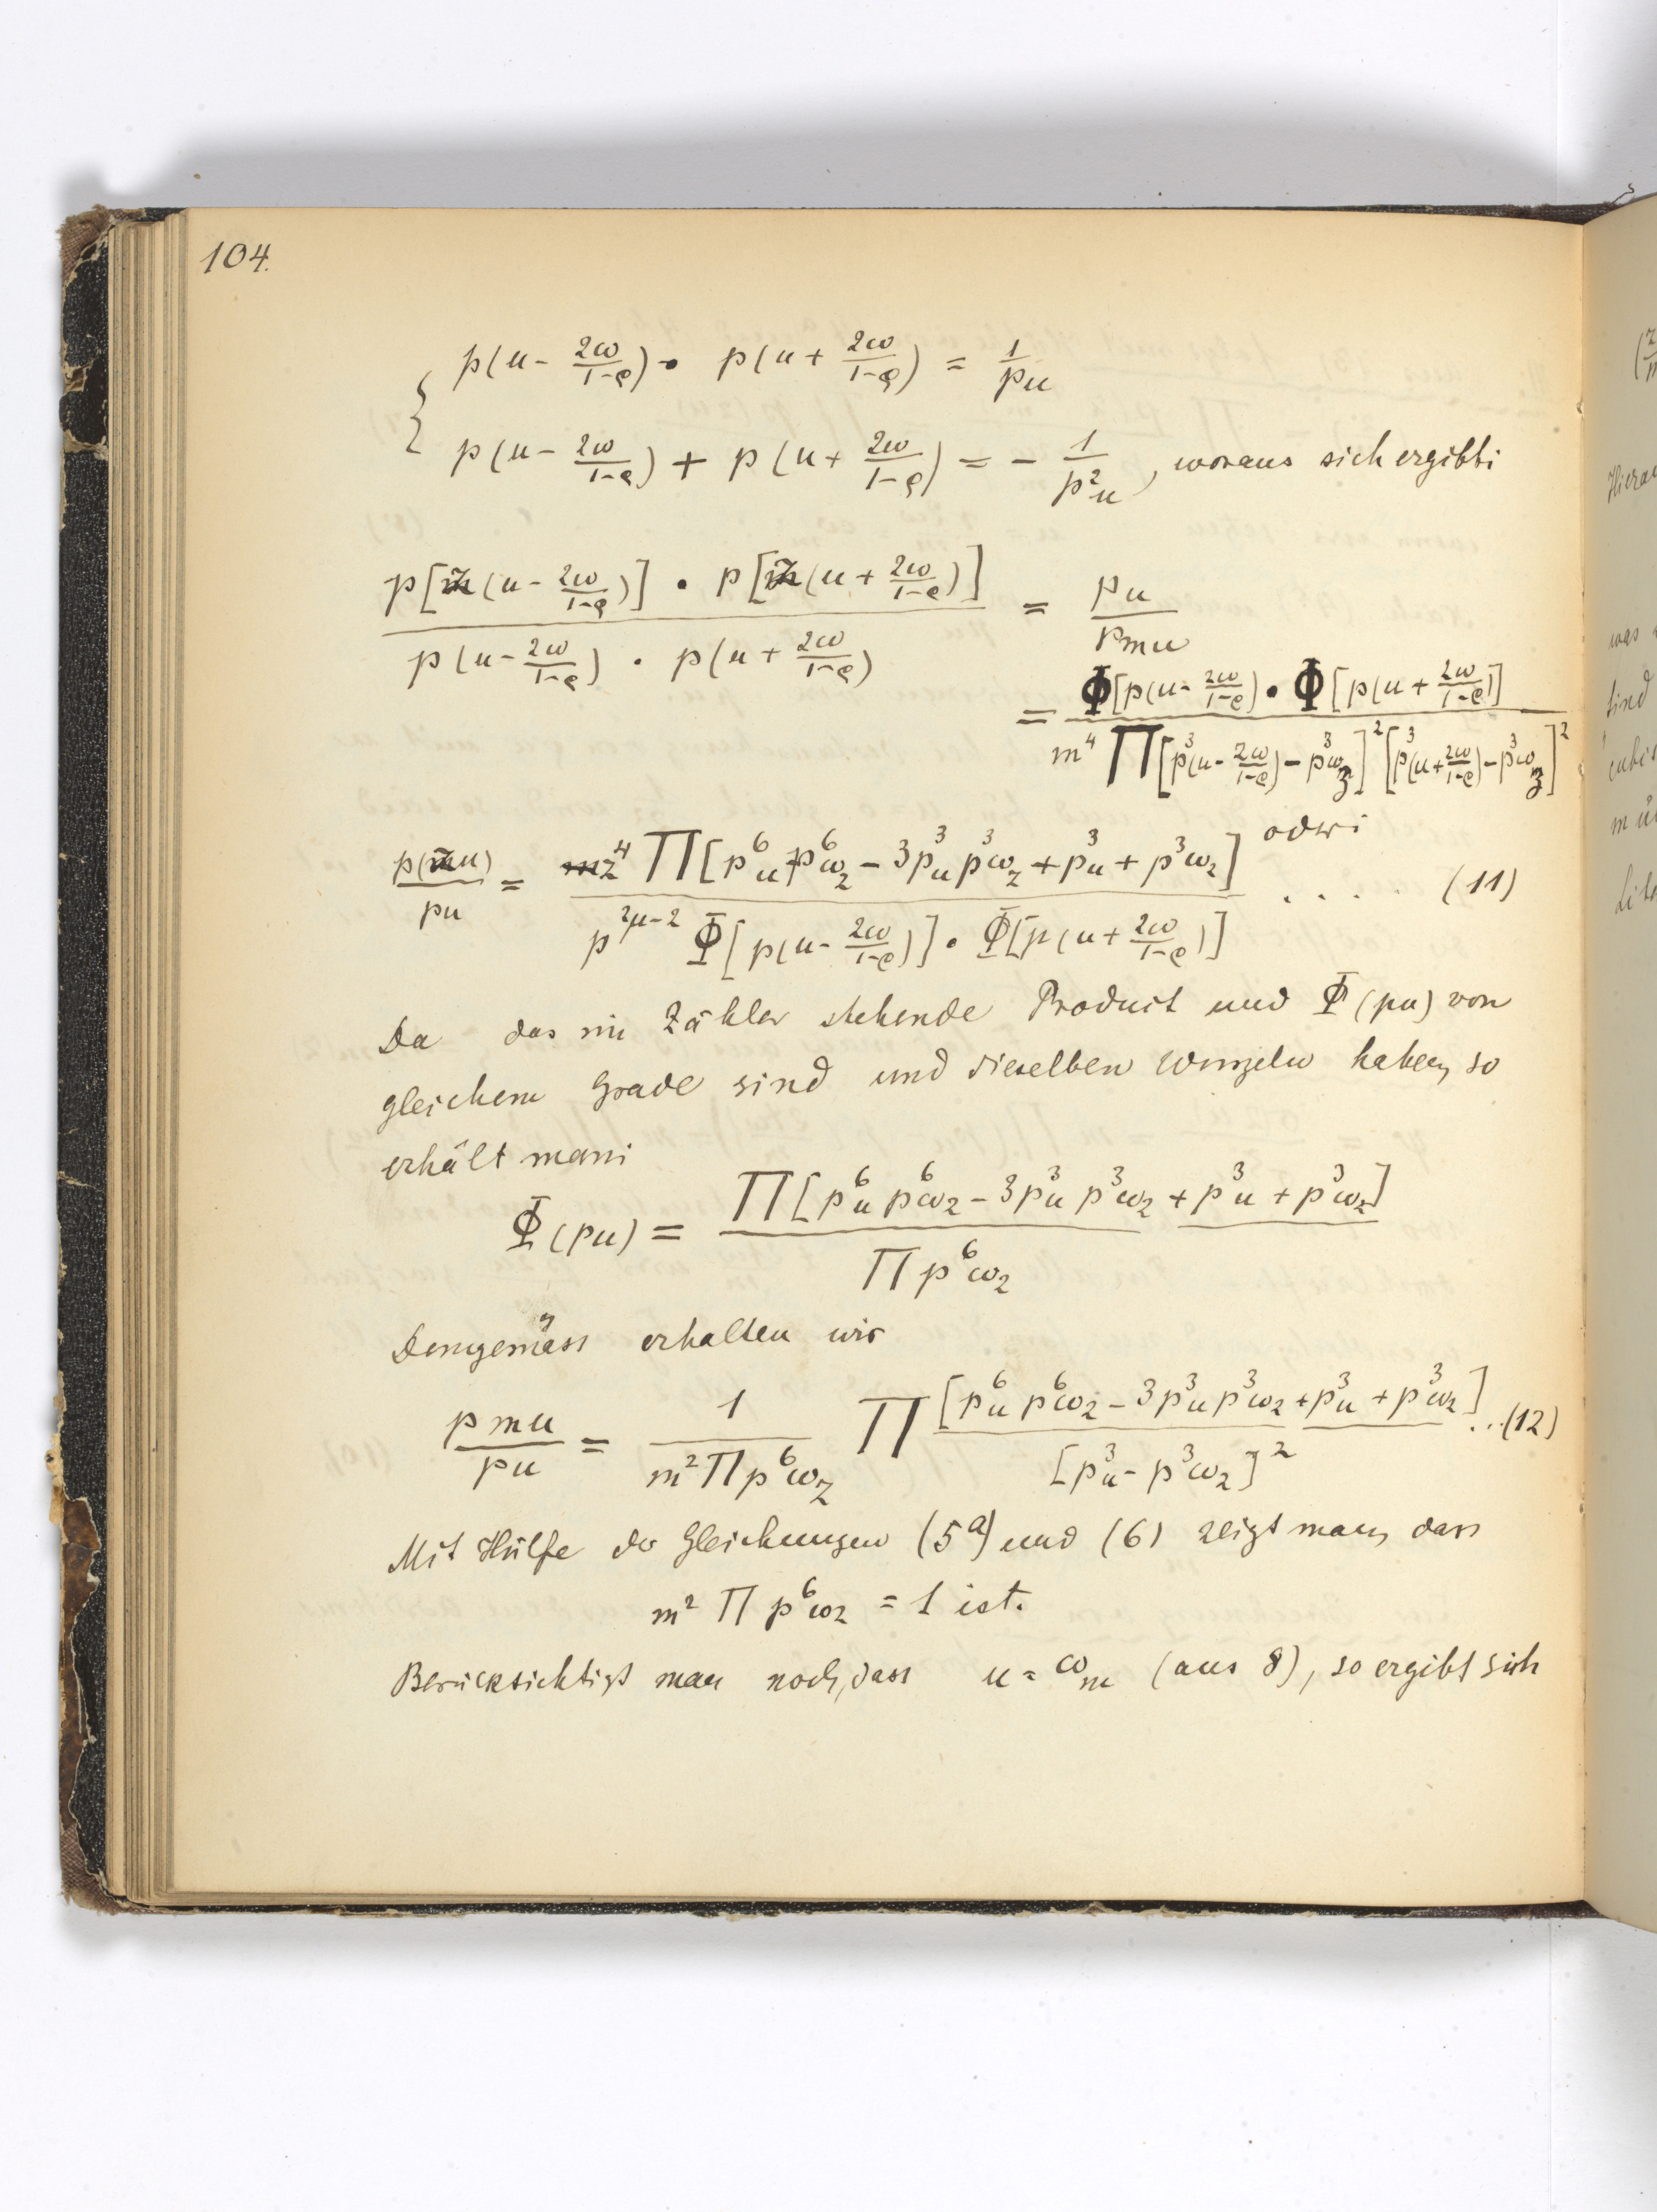 104.
{ p(u - 2ω/(1-ϱ)) · p(u + 2ω/(1-ϱ)) = 1/pu
p(u - 2ω/(1-ϱ)) + p(u + 2ω/(1-ϱ)) = - 1/p²u, woraus sich ergibt:
p[m̄(u - 2ω/(1-ϱ))] · p[m̄(u + 2ω/(1-ϱ))] / p(u - 2ω/(1-ϱ)) · p(u + 2ω/(1-ϱ)) = pu/pmu
= Φ[p(u - 2ω/(1-ϱ)) · Φ[p(u + 2ω/(1-ϱ))] / m⁴ ∏[p³(u - 2ω/(1-ϱ)) - p³ω_z]² [p³(u + 2ω/(1-ϱ)) - p³ω_z]²
oder:
p(m̄u)/pu = z⁴ ∏[p⁶u p⁶ω_z - 3p³u p³ω_z + p³u + p³ω_z] / p^{2μ-2} Φ[p(u - 2ω/(1-ϱ))] · Φ[p(u + 2ω/(1-ϱ))] .... (11)
Da das im Zähler stehende Product und Φ(pu) von
gleichem Grade sind und dieselben Wurzeln haben, so
erhält man:
Φ(pu) = ∏[p⁶u p⁶ω_z - 3p³u p³ω_z + p³u + p³ω_z] / ∏p⁶ω_z
Demgemäss erhalten wir
pmu/pu = 1/(m²∏p⁶ω_z) ∏ [p⁶u p⁶ω_z - 3p³u p³ω_z + p³u + p³ω_z] / [p³u - p³ω_z]² ..(12)
Mit Hülfe der Gleichungen (5ᵃ) und (6) zeigt man, dass
m² ∏ p⁶ω_z = 1 ist.
Berücksichtigt man noch, dass u = ω_m (aus 8), so ergibt sich